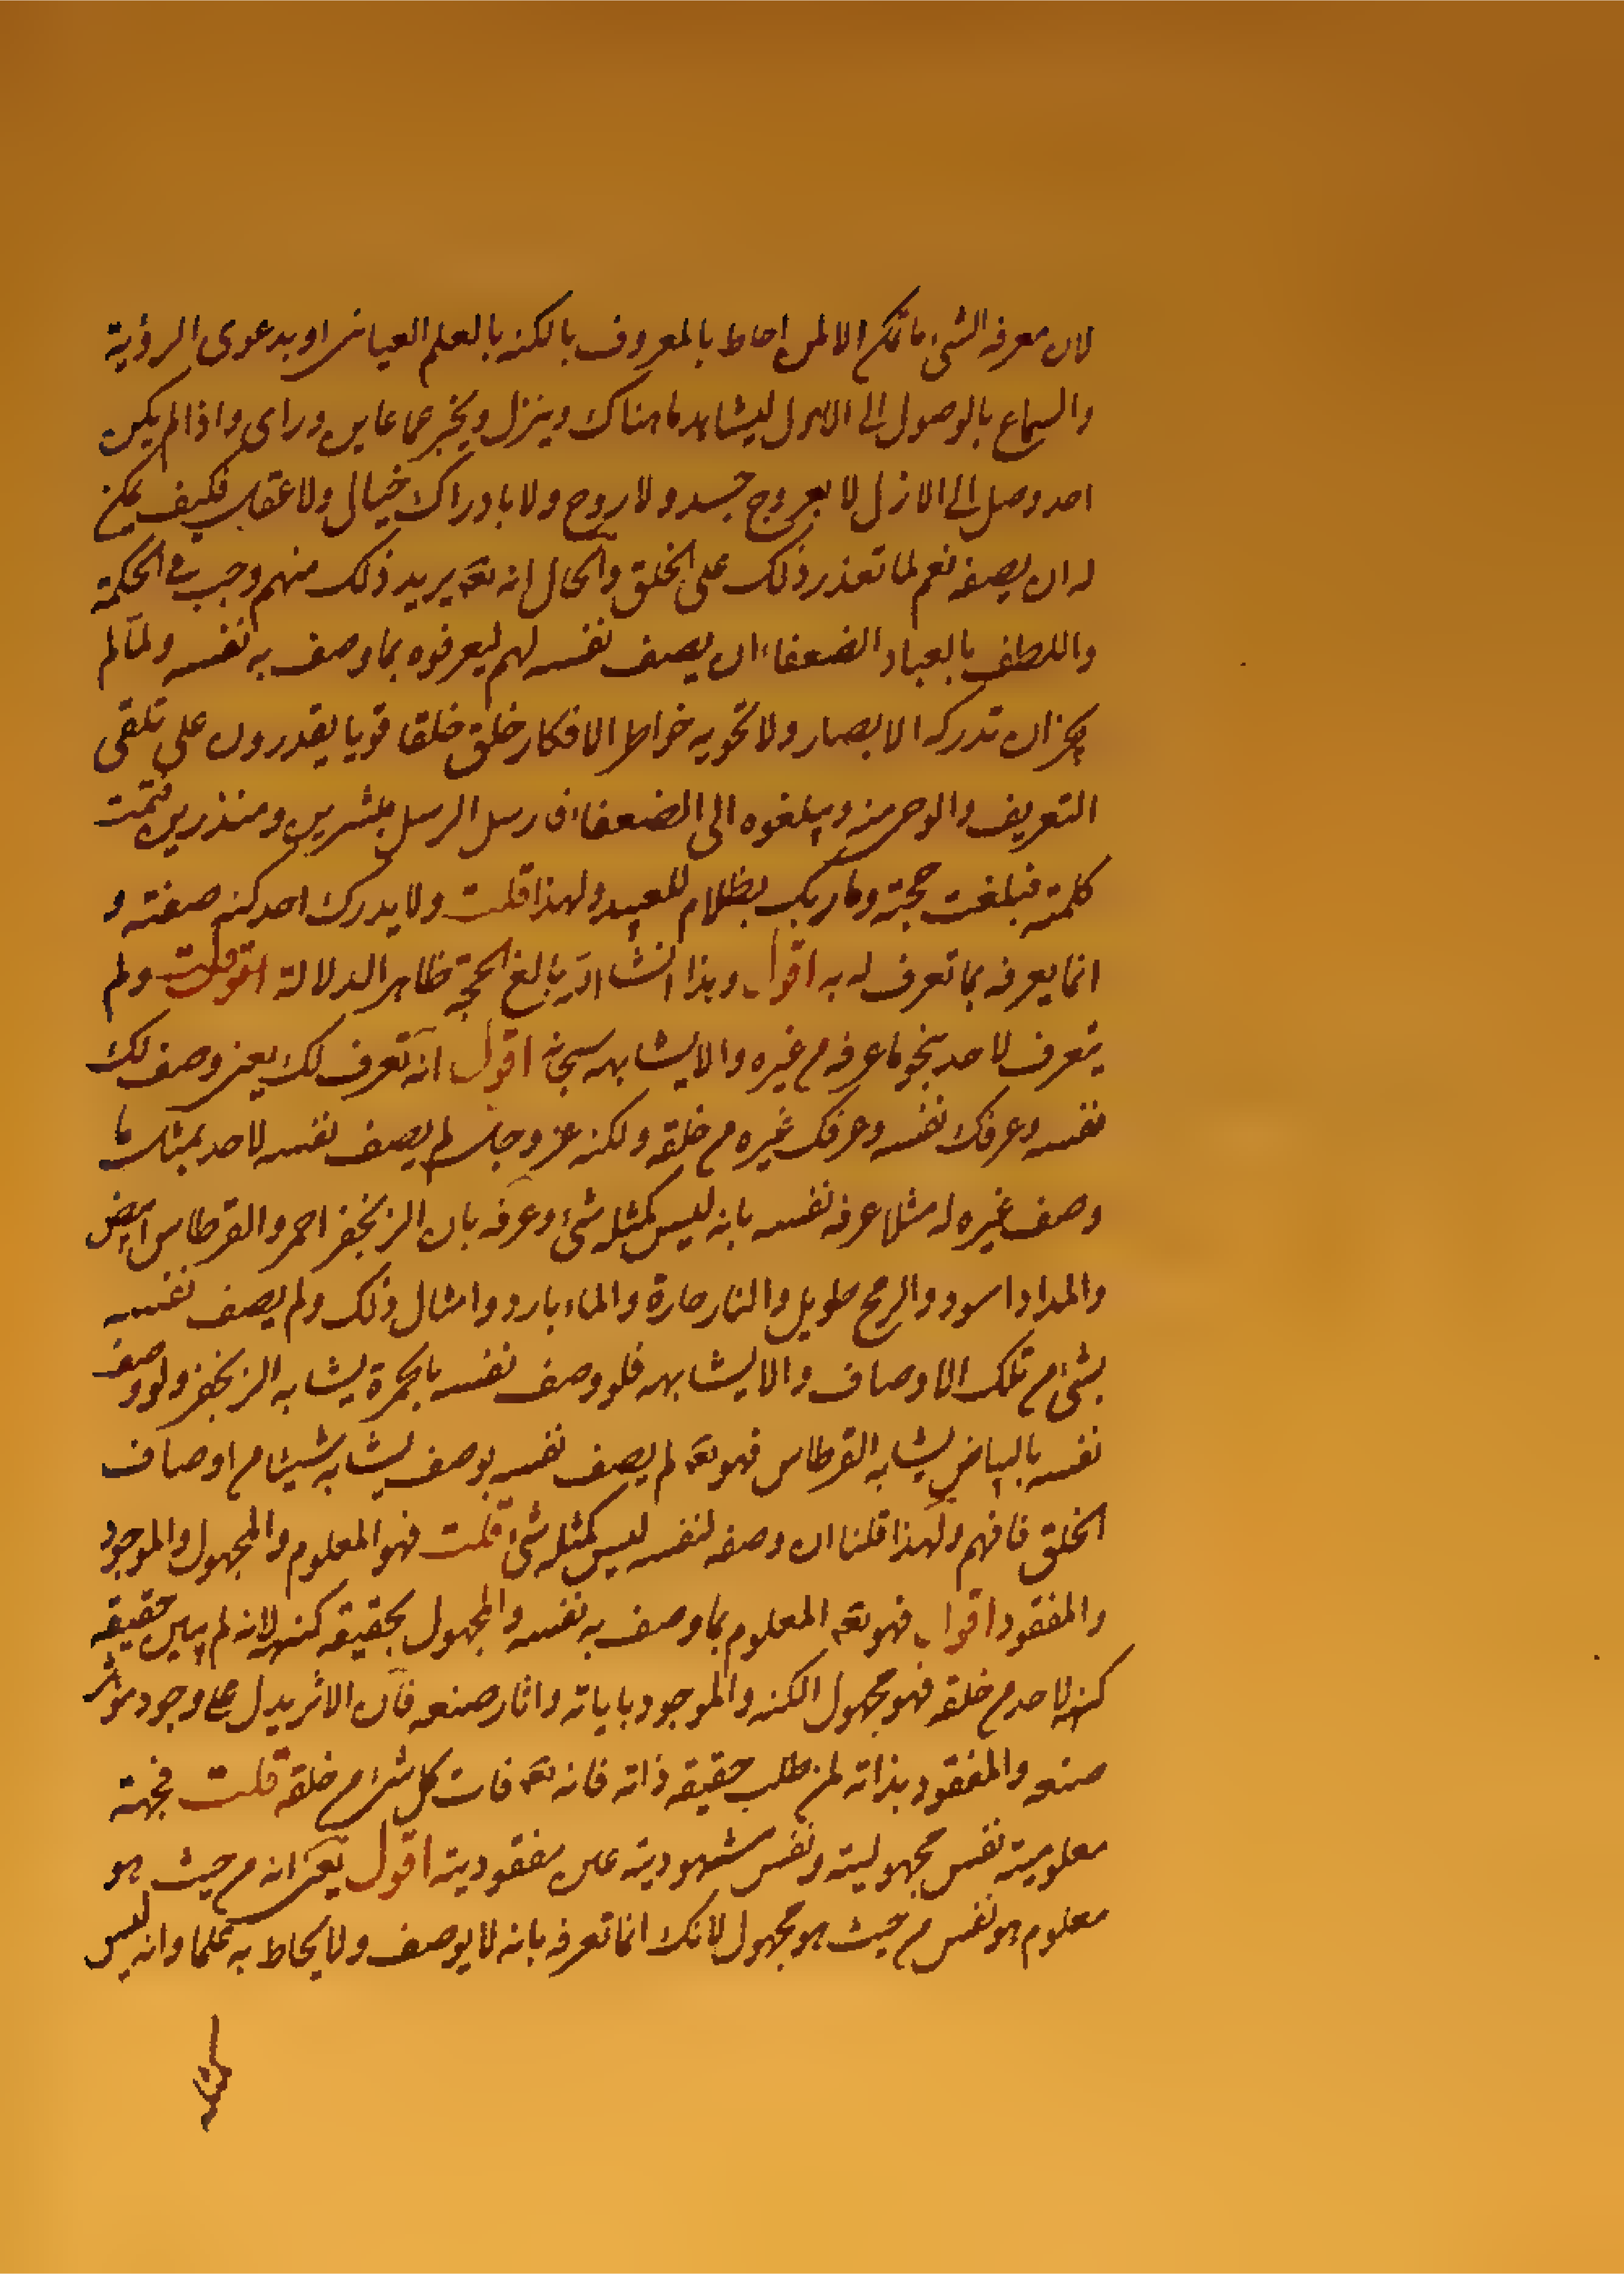 لان معرفة الشئ ما تكم الا لمن احاط بالمعروف بالكنه بالعلم العيانى او بدعوى الرؤية
والسماع بالوصول الى الازل ليشاهد ما هناك وينزل ويخبر عما عاين وراى واذا لم يكن
احد وصل الى الازل لا بعروج جسد ولا روح ولا بادراك خيال ولا عقل فكيف يمكن
له ان يصفه نعم لما تعذر ذلك على الخلق والحال انه تعه يريد ذلك منهم وجب فى الحكمة
واللطف بالعباد الضعفاء ان يصف نفسه لهم ليعرفوه بما وصف به نفسه ولما لم
يجز ان تدركه الابصار ولا تحويه خواطر الافكار خلق خلقا قويا يقدرون على تلقى
التعريف والوحى منه ويبلغوه الى الضعفاء فارسل الرسل مبشرين ومنذرين فتمت
كلمته فبلغت حجته وما ربك بظلام للعبيد ولهذا قلت ولا يدرك احد كنه صفته و
انما يعرفه بما تعرف له به اقول وهذا انشاء الله بالغ الحجة ظاهر الدلالة قلت ولم
يتعرف لاحد بنحو ما عرفه م غيره والا لشابهه سبحانه اقول انه تعرف لك يعنى وصف لك
نفسه وعرفك نفسه وعرفك غيره م خلقه ولكنه عز وجل لم يصف نفسه لاحد بمثل ما
وصف غيره له مثلا عرفه نفسه بانه ليس كمثله شئ وعرفه بان الزنجفر احمر والقرطاس ابيض
والمداد اسود والرمح طويل والنار حارة والماء بارد وامثال ذلك ولم يصف نفسه
بشئ م تلك الاوصاف والا لشابهه فلو وصف نفسه بالحمرة لشابه الزنجفر ولو وصف
نفسه بالبياض لشابه القرطاس فهو تعه لم يصف نفسه بوصف يشابه شيئا م اوصاف
الخلق فافهم ولهذا قلنا ان وصفه لنفسه ليس كمثله شئ قلت فهو المعلوم والمجهول والموجود
والمفقود اقول فهو تعه المعلوم بما وصف به نفسه والمجهول بحقيقة كنهه لانه لم يبين حقيقة
كنهه لاحد م خلقه فهو مجهول الكنه والموجود باياته واثار صنعه فان الاثر يدل على وجود مؤثر
صنعه والمفقود بذاته لمن طلب حقيقة ذاته فانه تعه فات كل شئ م خلقه قلت فجهة
معلوميته نفس مجهوليته ونفس مشهوديته عين مفقوديته اقول يعنى انه م حيث هو
معلوم هو نفس م حيث هو مجهول لانك انما تعرفه بانه لا يوصف ولا يحاط به علما وانه ليس